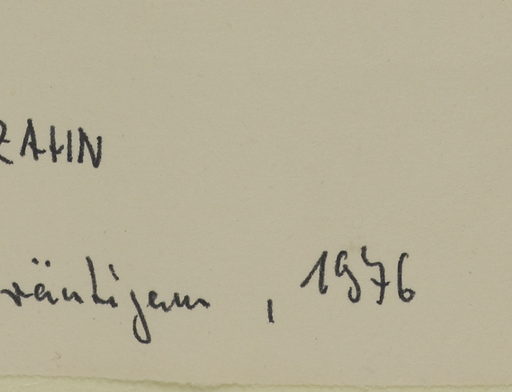 ZAHN
räutigam, 1976